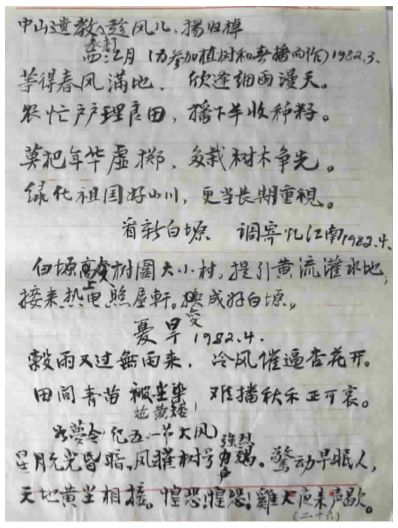 中山遗教人 风儿 扬归棹
西江月(为参加植树和春播而作)1982.3.
等得春风满地、欣逢细雨漫天。
农忙户户理启田,播下羊收种籽。
莫把年华虚掷、多栽树木争先。
绿化祖国好山川,更当长期重视。
看新白塬 调寄忆江南1982.4.
白塬 树围大小村,提引黄流灌水地,
上
接来热电照屋轩。换成好白塬。
变
夏旱 1982.4.
谷雨又过无雨来,冷风催逼杏花开。
田间青苗被尘染,难播秋禾正可哀。
如梦令(记五一节大风)
强烈
星月无光昏暗,风摧树 。惊动早眠人,
天地黄尘相接。惶恐!惶恐!鸡犬 未声歇。
(二十六)